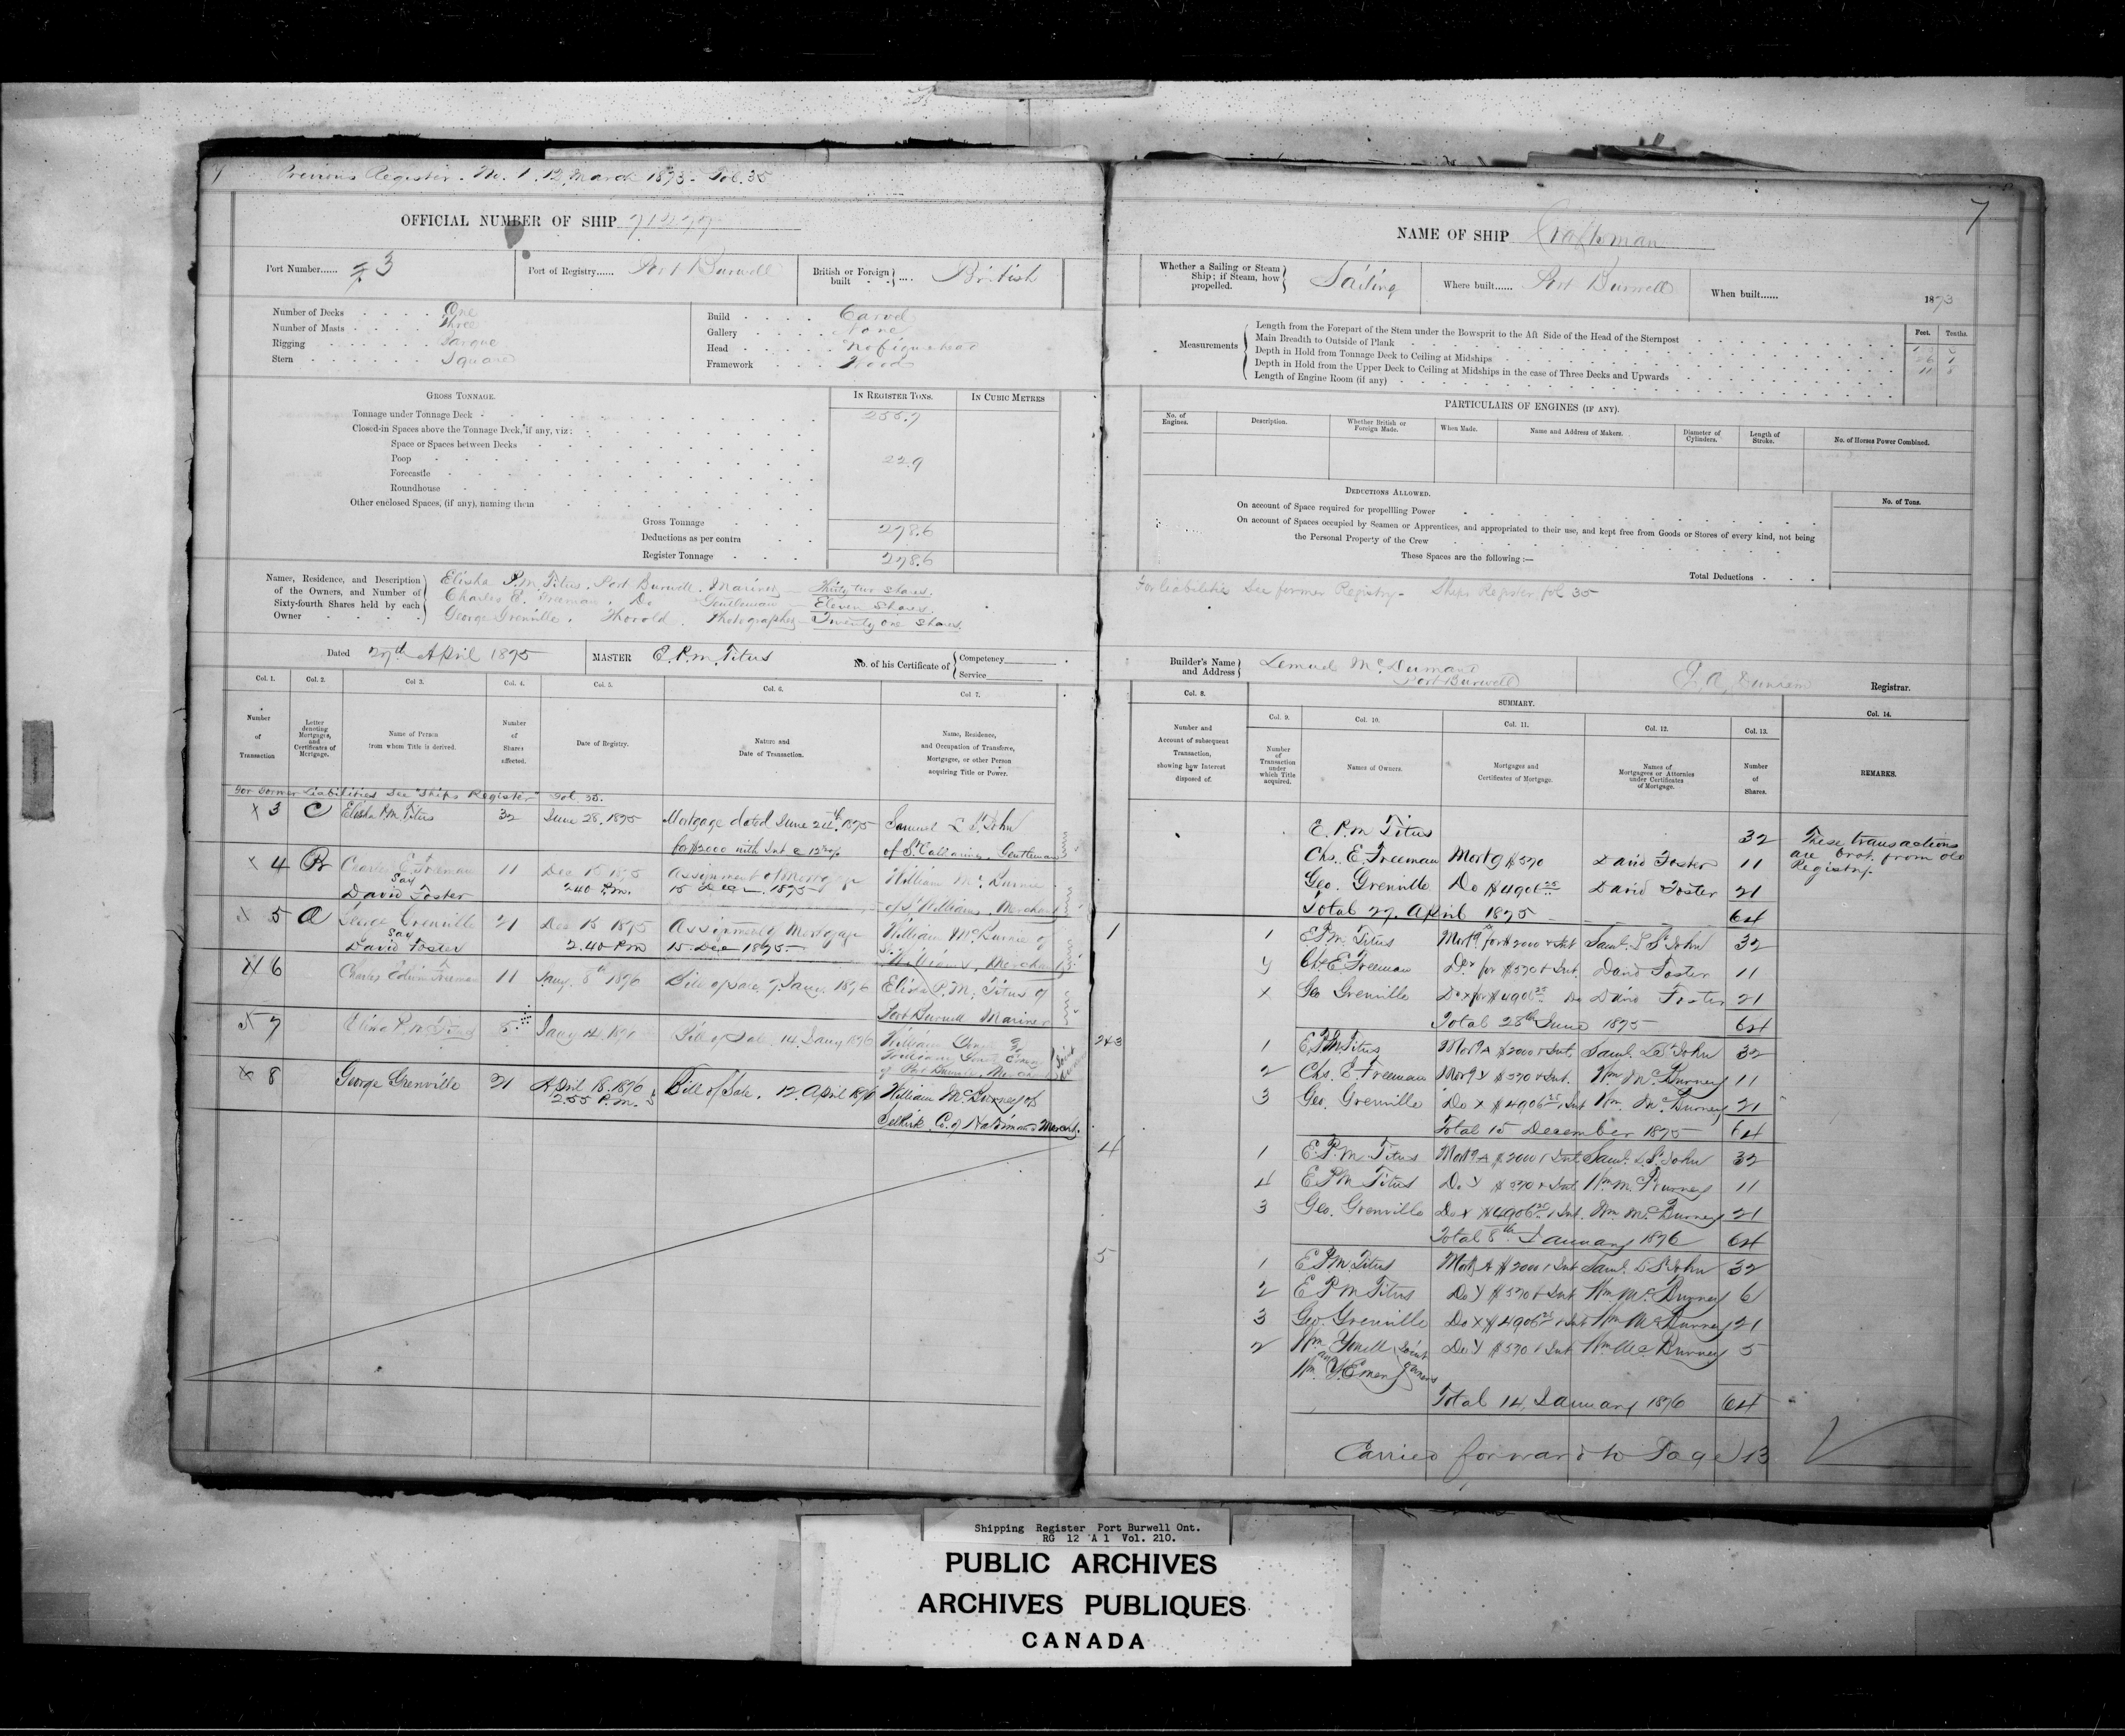 Previous Register. No. 1. 12 March 1873. Fol. 35
OFFICIAL NUMBER OF SHIP
Port Number...... 3
Port of Registry...... Port Burwell
British or Foreign built .... British
Number of Decks One
Number of Masts Three
Rigging Barque
Stern Square
Build Carvel
Gallery None
Head No figurehead
Framework Wood
GROSS TONNAGE.
IN REGISTER TONS.
IN CUBIC METRES
Tonnage under Tonnage Deck 255.7
Closed-in Spaces above the Tonnage Deck, if any, viz:
Space or Spaces between Decks
Poop 22.9
Forecastle
Roundhouse
Other enclosed Spaces, (if any), naming them
Gross Tonnage 278.6
Deductions as per contra
Register Tonnage 278.6
Names, Residence, and Description of the Owners, and Number of Sixty-fourth Shares held by each Owner
Elisha P.M. Titus, Port Burwell, Mariner — Thirty two shares.
Charles E. Freeman, Do Gentleman — Eleven Shares.
George Grenville, Thorold, Photographer — Twenty one Shares.
Dated 27th April 1875
MASTER E.P.M. Titus
No. of his Certificate of Competency
Service
Col. 1. Col. 2. Col 3. Col. 4. Col. 5. Col. 6. Col. 7.
Number of Transaction
Letter denoting Mortgages, and Certificates of Mortgage.
Name of Person from whom Title is derived.
Number of Shares affected.
Date of Registry.
Nature and Date of Transaction.
Name, Residence, and Occupation of Transferee, Mortgagee, or other Person acquiring Title or Power.
For former Liabilities See "Ships Register" Fol. 35.
x 3 C Elisha P.M. Titus 32 June 28. 1875 Mortgage dated June 24th, 1875 Samuel L St. John
for $2000 with Int @ of St Catharines, Gentleman
x 4 B Charles E. Freeman 11 Dec 15 1875 Assignment of Mortgage William
Say David Foster 2.40 P.M. 15 Dec 1875 of St Williams, Merchant
x 5 A George Grenville 21 Dec 15 1875 Assignment of Mortgage William McBurnie of
Say David Foster 2.40 P.M 15 Dec 1875 St. Williams, Merchant
x 6 Charles Edwin Freeman 11 Jany. 8th 1876 Bill of Sale 7. Jany. 1876 Elisha P.M. Titus of
Port Burwell Mariner
x 7 Elisha P.M. Titus 5 Jany 14. 1876 Bill of Sale 14. Jany 1876 William
William
of Port Burwell, Merchants Joint
x 8 George Grenville 21 April 18. 1876 Bill of Sale. 12. April 1876 William McBurney of
2.55 P.M. Selkirk. Co. of Haldimand Mercht.
7
NAME OF SHIP Craftsman
Whether a Sailing or Steam Ship; if Steam, how propelled. Sailing
Where built...... Port Burwell
When built...... 1873
Measurements
Feet. Tenths.
Length from the Forepart of the Stem under the Bowsprit to the Aft Side of the Head of the Sternpost
Main Breadth to Outside of Plank
Depth in Hold from Tonnage Deck to Ceiling at Midships
Depth in Hold from the Upper Deck to Ceiling at Midships in the case of Three Decks and Upwards
Length of Engine Room (if any)
PARTICULARS OF ENGINES (IF ANY).
No. of Engines.
Description.
Whether British or Foreign Made.
When Made.
Name and Address of Makers.
Diameter of Cylinders.
Length of Stroke.
No. of Horses Power Combined.
DEDUCTIONS ALLOWED.
No. of Tons.
On account of Space required for propellling Power
On account of Spaces occupied by Seamen or Apprentices, and appropriated to their use, and kept free from Goods or Stores of every kind, not being
the Personal Property of the Crew
These Spaces are the following:—
Total Deductions
For liabilities See former Registry - Ships Register, fol 35
Builder's Name and Address
Port Burwell
Registrar.
Col. 8.
SUMMARY.
Col. 14.
Col. 9. Col. 10. Col. 11. Col. 12. Col. 13.
Number and Account of subsequent Transaction, showing how Interest disposed of.
Number of Transaction under which Title acquired.
Names of Owners.
Mortgages and Certificates of Mortgage.
Names of Mortgagees or Attornies under Certificates of Mortgage.
Number of Shares.
REMARKS.
E. P.M Titus 32
These transactions are brot. from old Registry.
Chs. E. Freeman Mortg $570 David Foster 11
Geo. Grenville Do $4906 25 David Foster 21
Total 27. April 1875 64
1
1 E.P.M. Titus Mortg for $2000 & Int Saml. L St John 32
y Ch. E Freeman Do for $570 & Int. David Foster 11
x Geo Grenville Do x for $4906 25 Do David Foster 21
Total 28th June 1875 64
2&3
1 E.P.M. Titus Mortg A $2000 & Int. Saml. L St John 32
2 Chs. E. Freeman Mortg y $570 & Int. Wm McBurney 11
3 Geo. Grenville Do x $4906 25 & Int Wm. McBurney 21
Total 15 December 1875 64
4
1 E.P.M Titus Mortg A $2000 & Int Saml. L. St John 32
4 E P M Titus Do Y $570 & Int. Wm McBurney 11
3 Geo. Grenville Do x $4906 & Int. Wm. McBurney 21
Total 8th January 1876 64
5
1 E P M Titus Mortg A $2000 & Int Saml. L St John 32
2 E P M Titus Do Y $570 & Int Wm McBurney 6
3 Geo. Grenville Do x $4906 25 & Int Wm McBurney 21
2 Wm Youell Joint Do Y $570 & Int Wm McBurney 5
and Wm. Y. Emery owners
Total 14, January 1876 64
Carried forward to Page 13
Shipping Register Port Burwell Ont.
RG 12 A 1 Vol. 210.
PUBLIC ARCHIVES
ARCHIVES PUBLIQUES
CANADA